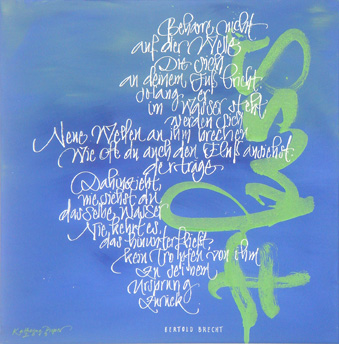 Beharre nicht
auf der Welle
Die sich
an deinem Fuß bricht.
solang er
im Wasser steht
werden sich
Neue Wellen an ihm brechen
Wie oft du auch den Fluß ansiehst.
der träge
Dahinzieht,
nie siehst du
dasselbe Wasser
Nie kehrt es,
das hinunterfließt,
kein Tropfen von ihm
zu seinem
Ursprung
zurück
BERTOLD BRECHT